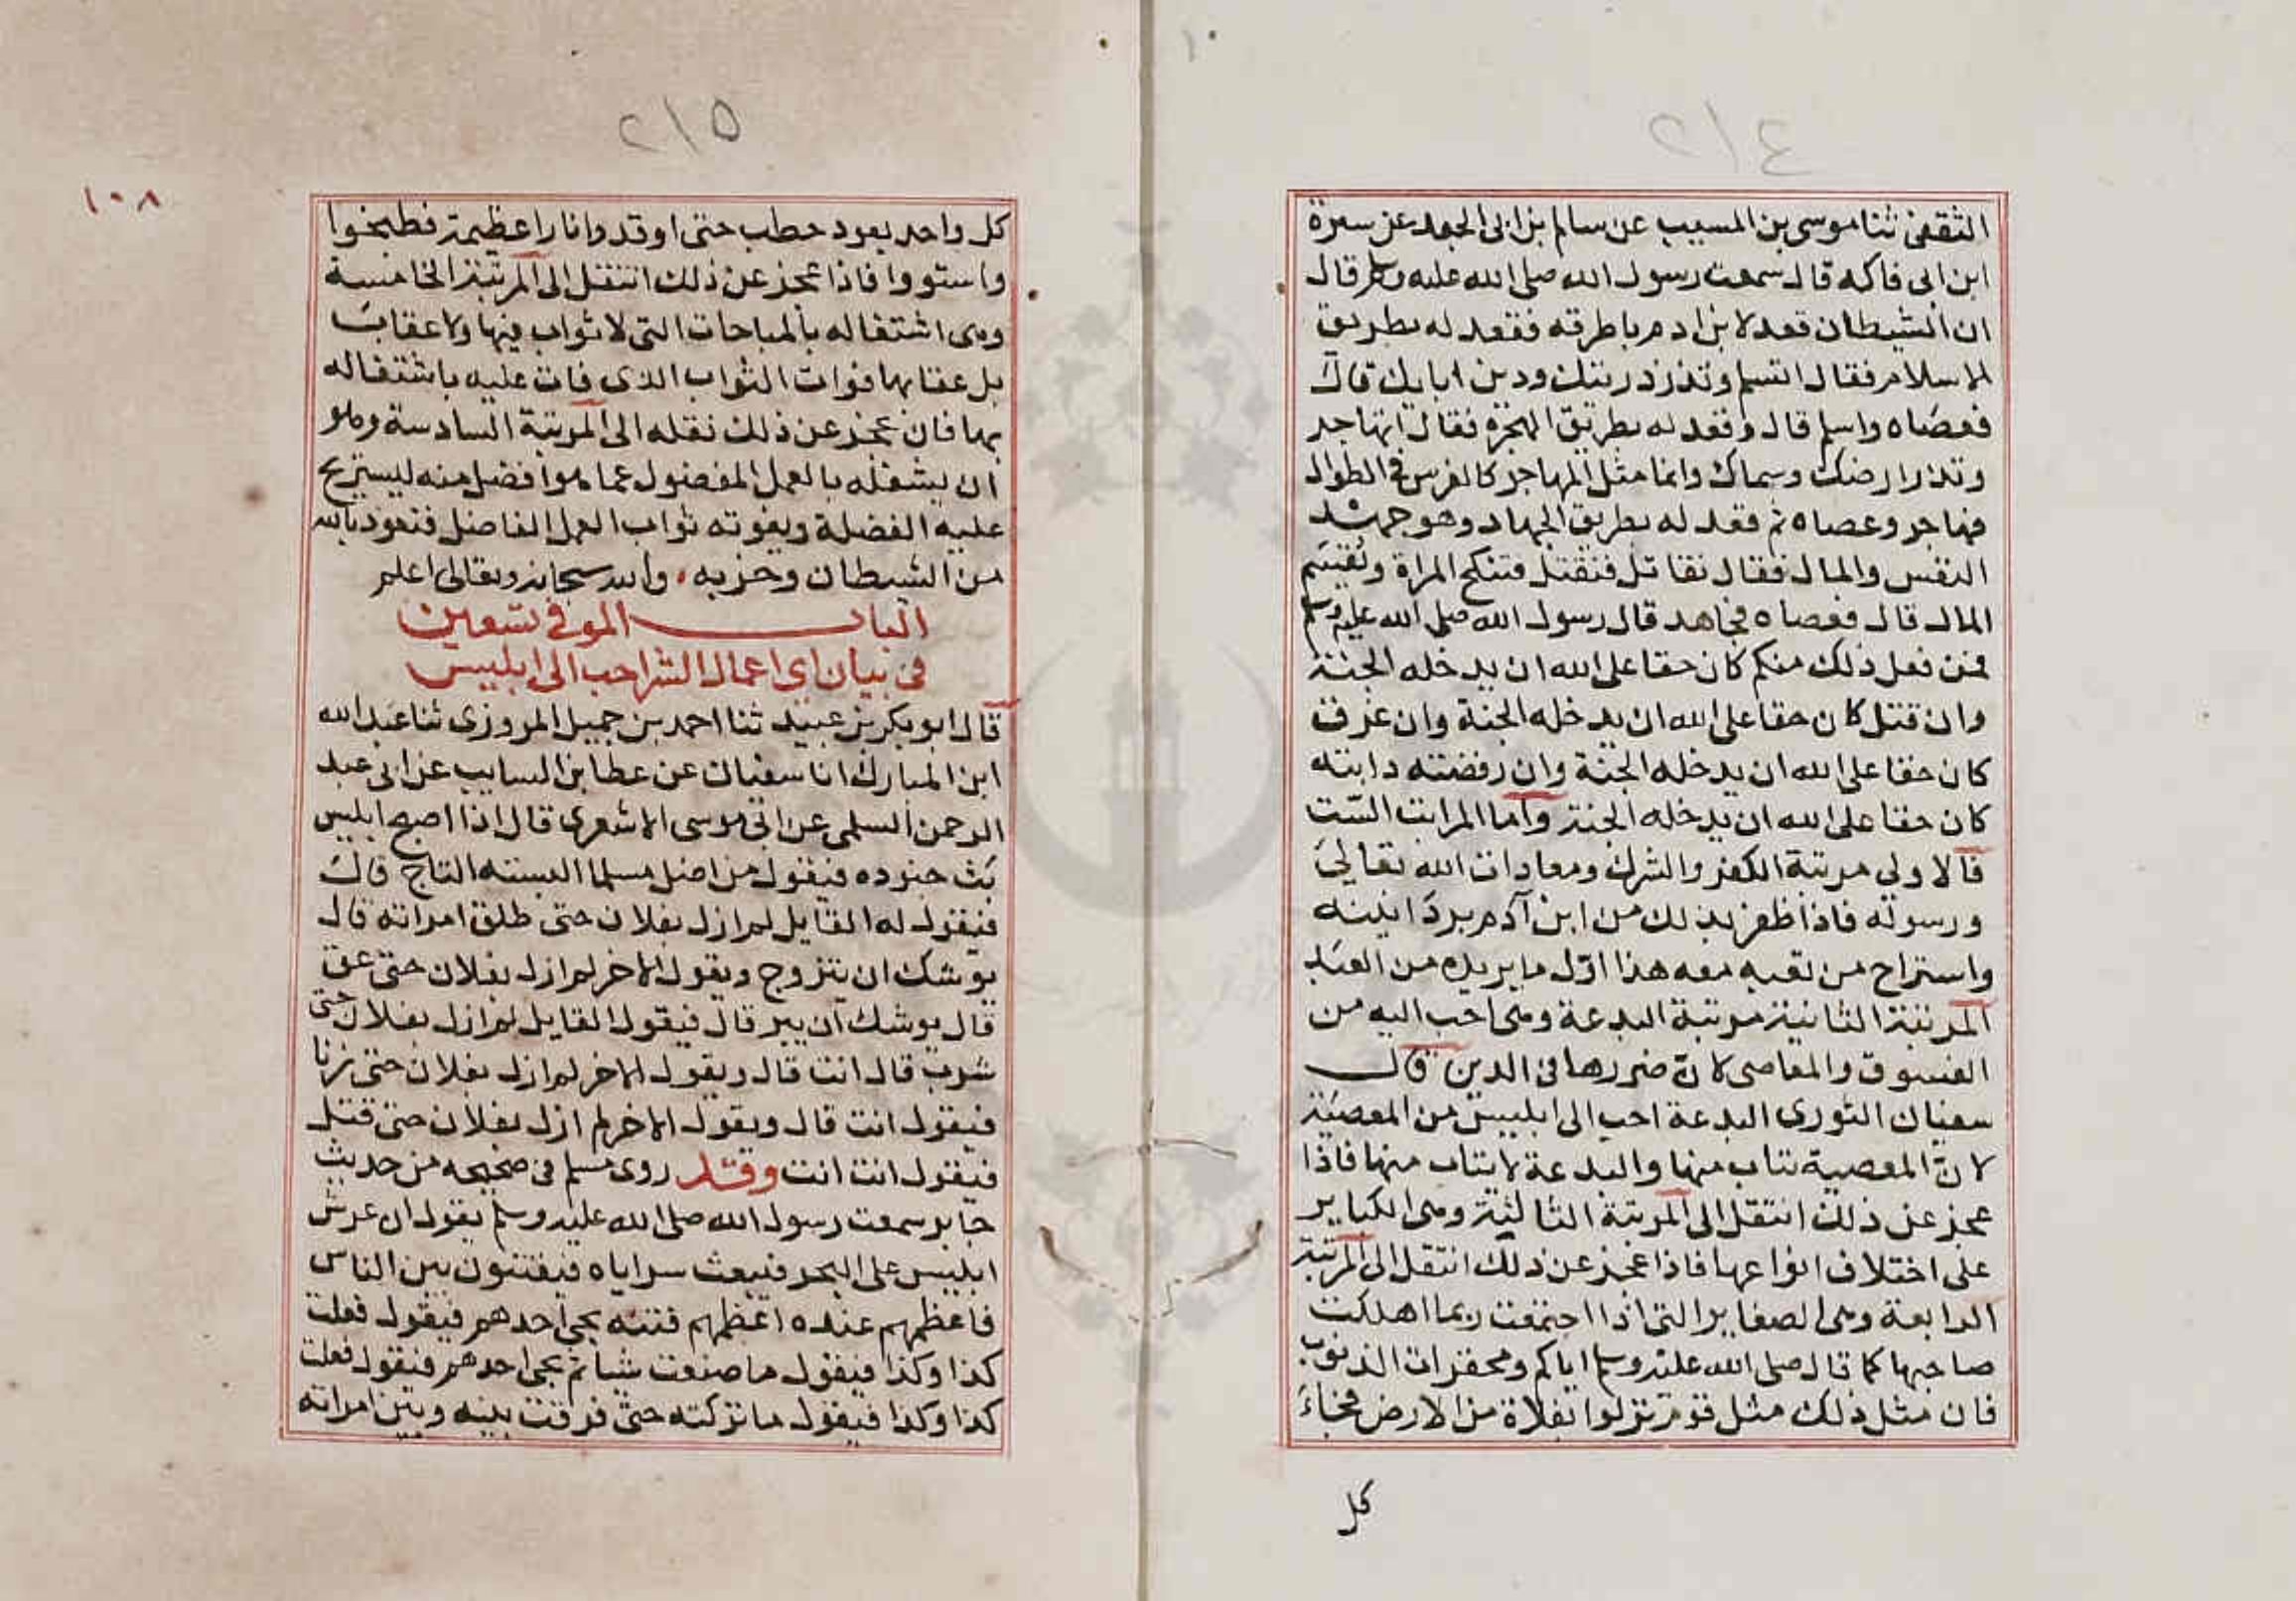 ٢١٤
الثقفى ثنا موسى بن المسيب عن سالم بن ابى الجعد عن سمرة
ابن ابى فاكه قال سمعت رسول الله صلى الله عليه وسلم قال
ان الشيطان قعد لابن ادم باطرقه فقعد له بطريق
الاسلام فقال اتسلم وتذر ذريتك ودين ابايك قال
فعصاه واسلم قال وقعد له بطريق الهجرة فقال اتهاجر
وتذر ارضك وسماك وانما مثل المهاجر كالفرس فى الطوال
فهاجر وعصاه ثم قعد له بطريق الجهاد وهو جهد
النفس والمال فقال تقاتل فتقتل فتنكح المراة وتقيسم
المال قال فعصاه فجاهد قال رسول الله صلى الله عليه وسلم
فمن فعل ذلك منكم كان حقا على الله ان يدخله الجنة
وان قتل كان حقا على الله ان يدخله الجنة وان غرق
كان حقا على الله ان يدخله الجنة وان رفضته دابته
كان حقا على الله ان يدخله الجنة واما المراتب الست
فالاولى مرتبة الكفر والشرك ومعادات الله تعالى
ورسوله فاذا ظفر بذلك من ابن آدم برد انينه
واستراح من تعبه معه هذا اول ما يريده من العبد
المرتبة الثانية مرتبة البدعة وهى احب اليه من
الفسوق والمعاصى لان ضررها فى الدين قال
سفيان الثورى البدعة احب الى ابليس من المعصية
لان المعصية يتاب منها والبدعة لا يتاب منها فاذا
عجز عن ذلك انتقل الى المرتبة الثالثية وهى الكباير
على اختلاف انواعها فاذا عجز عن ذلك انتقل الى المرتبة
الرابعة وهى الصغاير التى اذا اجتمعت ربما اهلكت
صاحبها كما قال صلى الله عليه وسلم اياكم ومحقرات الذنوب
فان مثل ذلك مثل قوم نزلوا بفلاة من الارض فجاء
كل
٢١٥
١٠٨
كل واحد بعود حطب حتى اوقدوا نارا عظيمة فطبخوا
واستووا فاذا عجز عن ذلك انتقل الى المرتبة الخامسة
وهى اشتغاله بالمباحات التى لا ثواب فيها ولا عقاب
بل عقابها فوات الثواب الذى فات عليه باشتغاله
بها فان عجز عن ذلك نقله الى المرتبة السادسة وهو
ان يشغله بالعمل المفضول عما هو افضل منه ليستريح
عليه الفضلة ويفوته ثواب العمل الفاضل فنعوذ بالله
من الشيطان وحزبه والله سبحانه وتعالى اعلم
الباب الموفى تسعين
فى بيان اى اعمال الشر احب الى ابليس
قال ابو بكر بن عبيد ثنا احمد بن جميل المروزى ثنا عبد الله
ابن المبارك انا سفيان عن عطا بن السايب عن ابى عبد
الرحمن السلمى عن ابى موسى الاشعرى قال اذا اصبح ابليس
بث جنوده فيقول من اضل مسلما البسته التاج قال
فيقول له القايل لم ازل بفلان حتى طلق امراته قال
يوشك ان يتزوج ويقول الاخر لم ازل بفلان حتى عق
قال يوشك ان يبر قال فيقول القايل لم ازل بفلان حتى
شرب قال انت قال ويقول الاخر لم ازل بفلان حتى زنا
فيقول انت قال ويقول الاخر لم ازل بفلان حتى قتل
فيقول انت انت وقد روى مسلم فى صحيحه من حديث
جابر سمعت رسول الله صلى الله عليه وسلم يقول ان عرش
ابليس على البحر فيبعث سراياه فيفتنون بين الناس
فاعظمهم عنده اعظمهم فتنة يجى احدهم فيقول فعلت
كذا وكذا فيقول ما صنعت شيا ثم يجى احدهم فيقول فعلت
كذا وكذا فيقول ما تركته حتى فرقت بينه وبين امراته